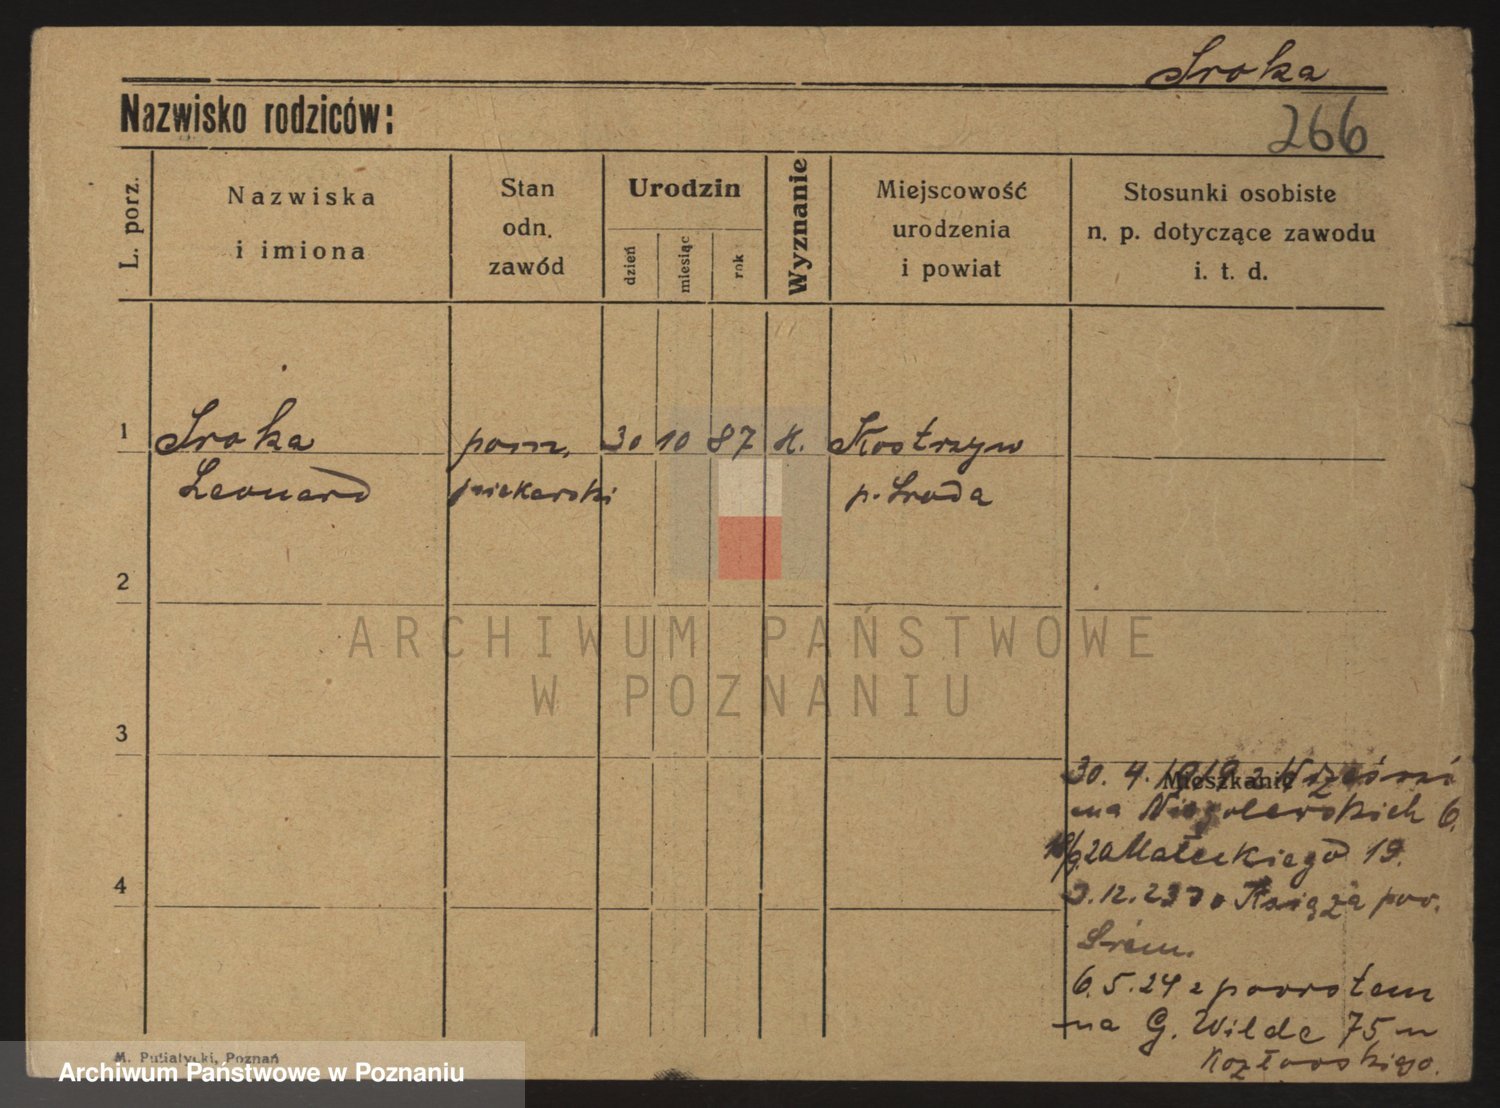 Sroka
Nazwisko rodziców:
266
L. porz.
Nazwiska
i imiona
Stan
odn.
zawód
Urodzin
dzień
miesiąc
rok
Wyznanie
Miejscowość
urodzenia
i powiat
Stosunki osobiste
n. p. dotyczące zawodu
i. t. d.
1 Sroka pom. 30 10 87 K. Kostrzyn
Leonard piekarski p. Środa
2
ARCHIWUM PAŃSTWOWE
W POZNANIU
3
Mieszkanie
30. 4. 1919 z
na Niegolewskich 6.
Małeckiego 19.
4
12. 23 do Książa pow.
Śrem.
6. 5. 24 z powrotem
na G. Wilde 75 u
Kozłowskiego.
M. Putiatycki, Poznań
Archiwum Państwowe w Poznaniu